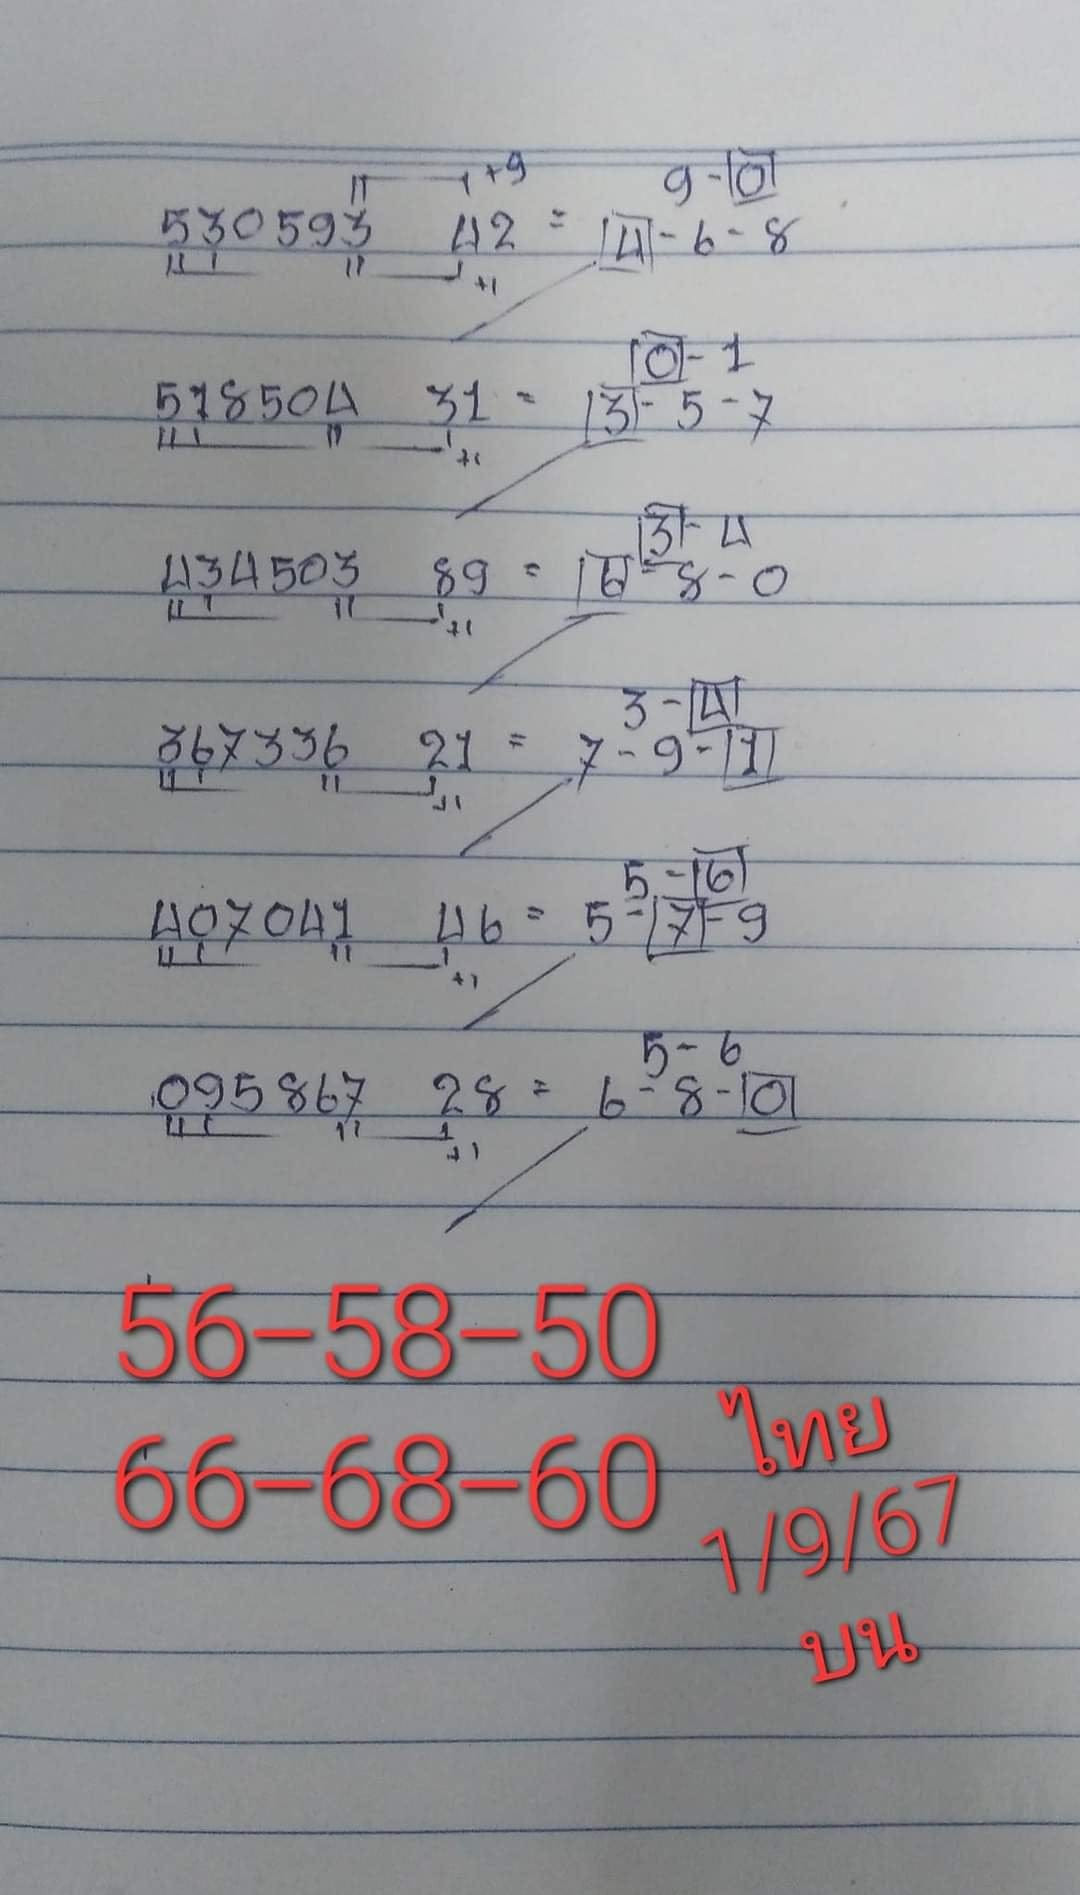 +9 9-0
530593 42 = 4-6-8
+1
0-1
518504 31 = 3-5-7
+1
3-4
434503 89 = 6-8-0
+1
3-4
367336 21 = 7-9-1
+1
5-6
407041 46 = 5-7-9
+1
5-6
095867 28 = 6-8-0
+1
56-58-50
66-68-60
ไทย
1/9/67
บน